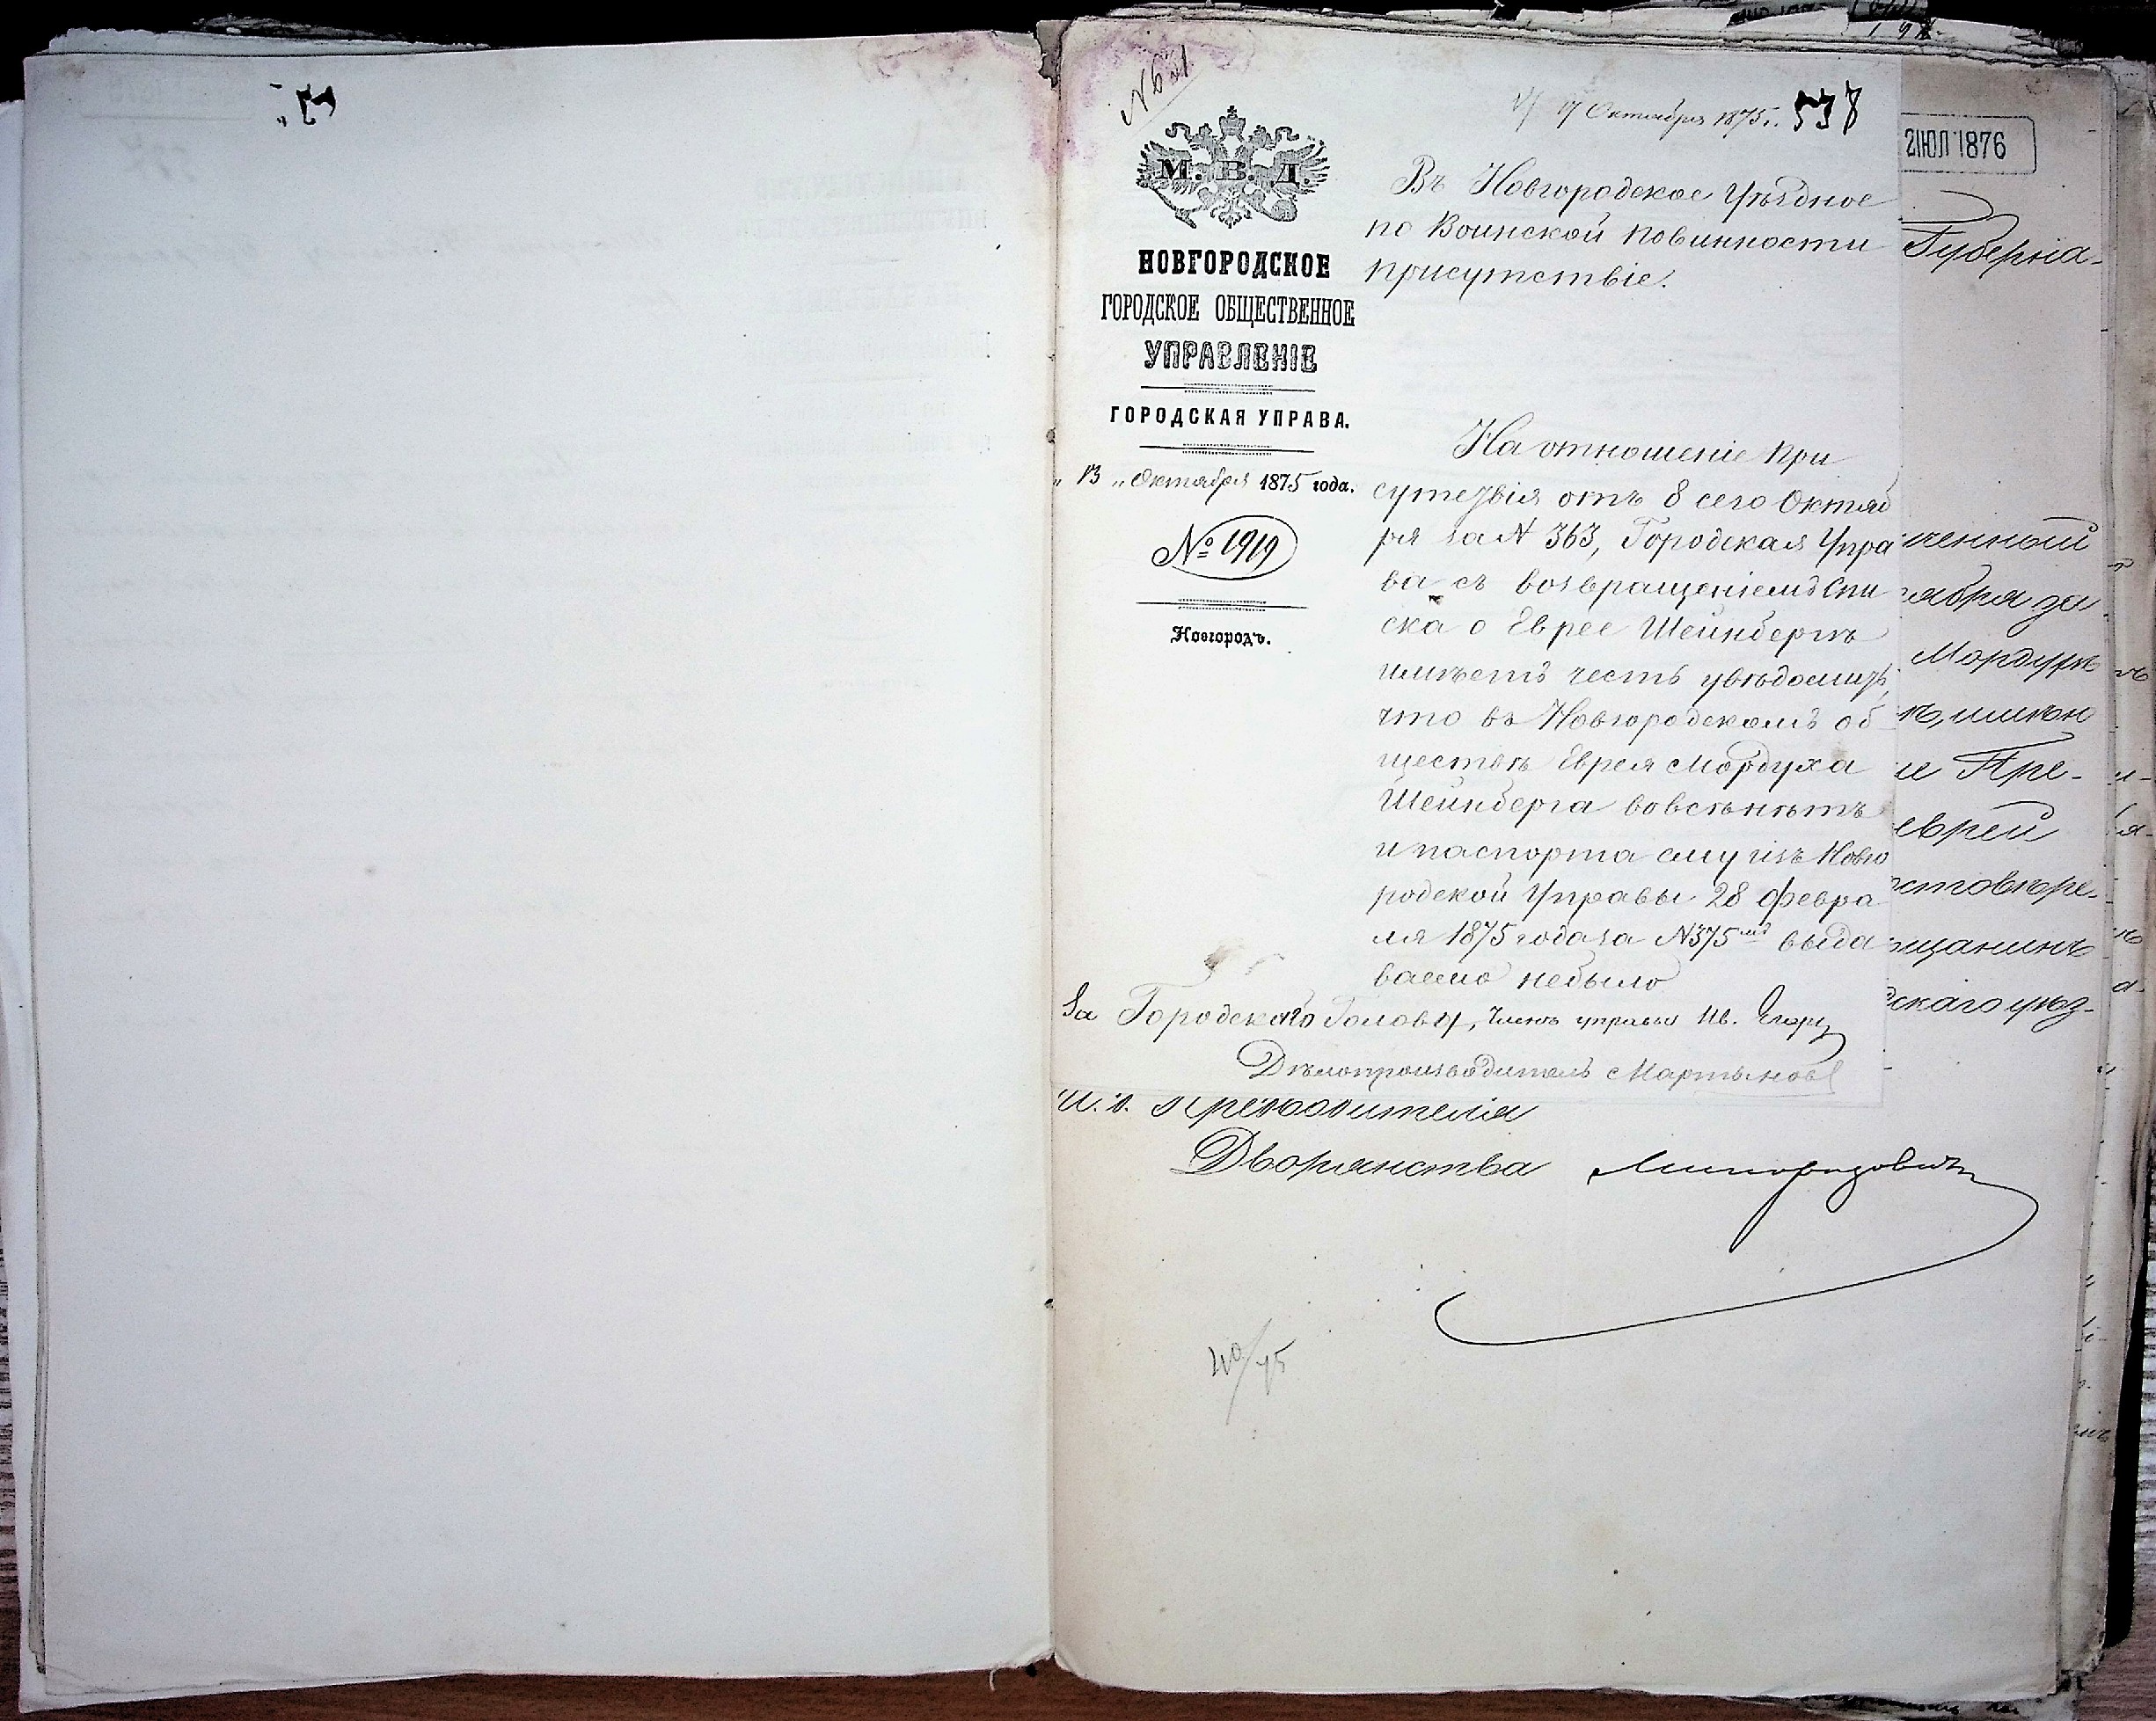 № 621
17 Октября 1875 г. 538
М. В. Д.
НОВГОРОДСКОЕ
ГОРОДСКОЕ ОБЩЕСТВЕННОЕ
УПРАВЛЕНІЕ
ГОРОДСКАЯ УПРАВА.
„ 13 „ Октября 1875 года.
№ 1919
Новгородъ.
Въ Новгородское Уѣздное
по Воинской повинности
присутствіе.
На отношеніе При
сутствія отъ 8 сего Октяб
ря за № 363, Городская Упра
ва съ возвращеніемъ спи
ска о Еврее Шейнбергѣ
имѣетъ честь увѣдомить,
что въ Новгородскомъ об
ществѣ Еврея Мордуха
Шейнберга вовсѣ нѣтъ
и паспорта ему изъ Новго
родской Управы 28 Февра
ля 1875 года за №375мъ выда
ваемо небыло
За Городскаго Голову, Членъ управы Ив.
Дѣлопроизводитель Мартыновъ
2 ІЮЛ 1876
Губерна-
ченный
ября за
Мордухъ
и Пре-
еврей
щанинъ
скаго уѣз-
И. д. Предводителя
Дворянства Милорадовичъ